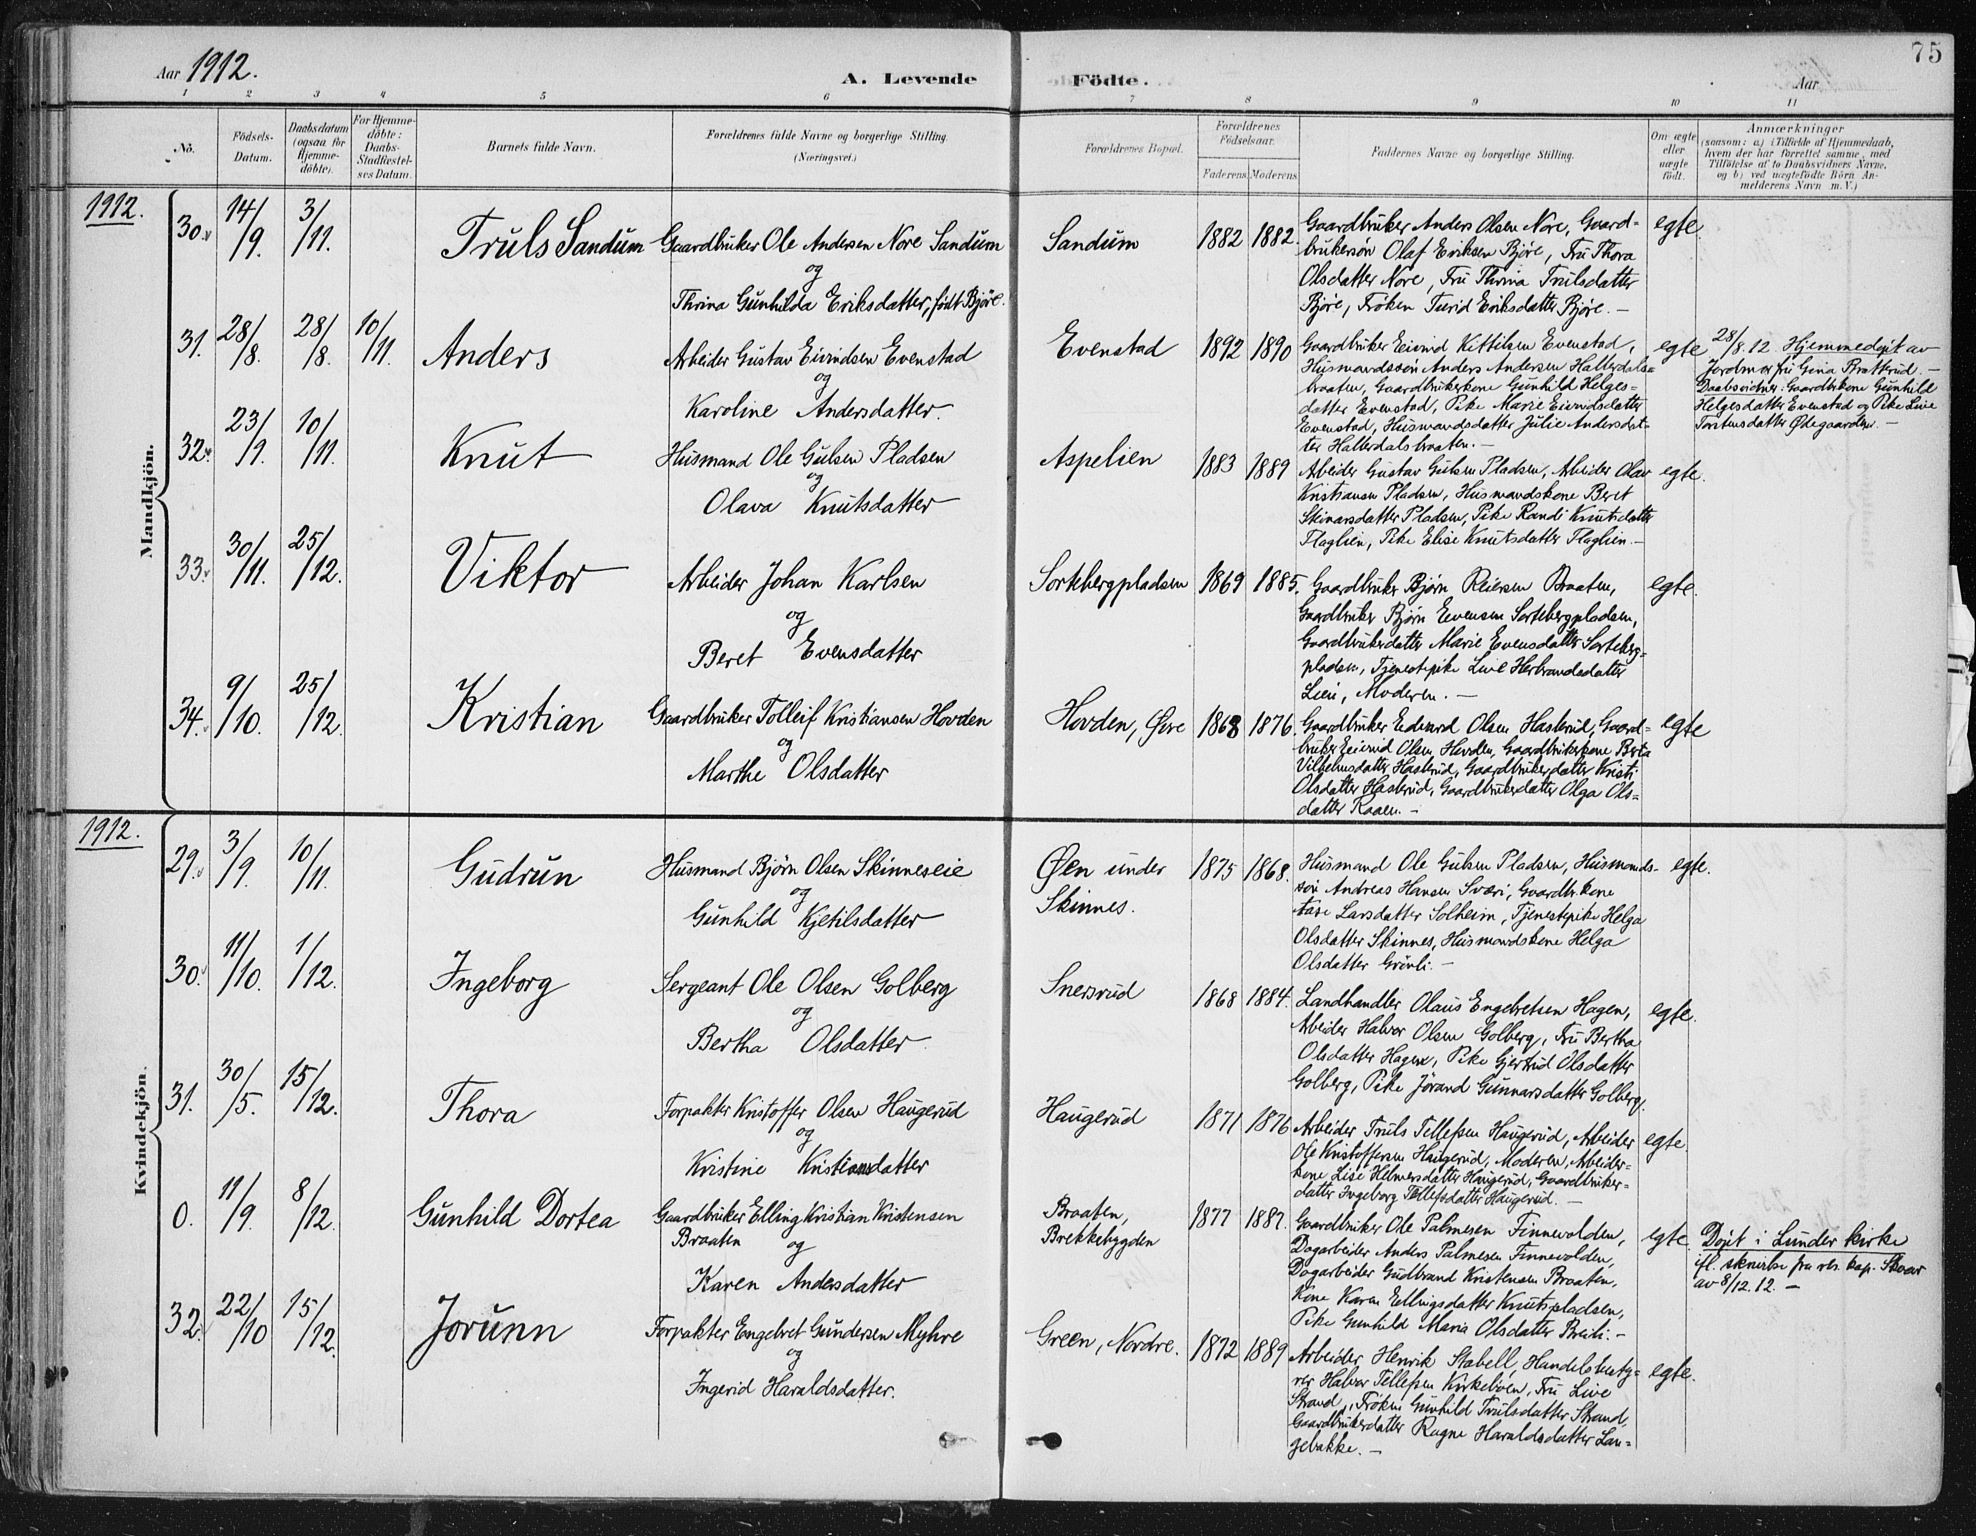 75
Aar 1912.
A. Levende Födte.
Aar
1 2 3 4 5 6 7 8 9 10 11
No.
Födsels-Datum.
Daabsdatum (ogsaa for Hjemme-döbte).
For Hjemme-döbte: Daabs-Stadfæstel-ses Datum.
Barnets fulde Navn.
Forældrenes fulde Navne og borgerlige Stilling. (Næringsvei.)
Forældrenes Bopæl.
Forældrenes Födselsaar.
Faderens Moderens
Faddernes Navne og borgerlige Stilling.
Om ægte eller uægte födt.
Anmærkninger
(saasom: a) i Tilfælde af Hjemmedaab,
hvem der har forrettet samme, med
Tilföielse af to Daabsvidners Navne,
og b) ved uægtefödte Börn An-
melderens Navn m. V.)
1912.
Mandkjön.
30. 14/9. 3/11. Truls Sandum Gaardbruker Ole Andersen Nore Sandum Sandum 1882 1882. Gaardbruker Anders Olsen Nore, Gaard- egte.
brukersön Olaf Eriksen Björe, Fru Thora
og
Olsdatter Nore, Fru Thrina Trulsdatter
Thrina Gunhilda Eriksdatter, födt Björe.
Björe, Fröken Turid Eriksdatter Björe. —
31. 28/8. 28/8. 10/11. Anders Arbeider Gustav Eivindsen Evenstad Evenstad 1892 1890 Gaardbruker Eivind Kittilsen Evenstad, egte 28/8.12. Hjemmedøpt av
Husmandssön Anders Andersen Hallerdals- Jordmor fru Gina Bratterud. —
og
braaten, Gaardbrukerkone Gunhild Helges- Daabsvidner: Gaardbkone Gunhild
Karoline Andersdatter.
datter Evenstad, Pike Marie Eivindsdatter Helgesdatter Evenstad og Pike Live
Evenstad, Husmandsdatter Julie Andersdat- Torstensdatter Ødegaarden. —
ter Hallerdalsbraaten. —
32. 23/9. 10/11. Knut Husmand Ole Gulsen Pladsen Aspelien 1883 1889 Arbeider Gustav Gulsen Pladsen, Arbeider Olav egte.
og
Kristiansen Pladsen, Husmandskone Beret
Olava Knutsdatter
Steinarsdatter Pladsen, Pike Randi Knutsdatter
Flaglien, Pike Elise Knutsdatter Flaglien. —
33. 30/11. 25/12. Viktor Arbeider Johan Karlsen Sortebergpladsen 1869 1885. Gaardbruker Bjørn Reiersen Braaten, egte.
og
Gaardbruker Bjørn Evensen Sortebergpladsen,
Beret Evensdatter
Gaardbrukerdatter Marie Evensdatter Sorteberg-
pladsen, Tjenestepike Live Herbrandsdatter
Lien, Moderen. —
34. 9/10. 25/12. Kristian Gaardbruker Tolleif Kristiansen Hovden Hovden, Øvre 1868 1876. Gaardbruker Edvard Olsen Hasterud, Gaard- egte
og
bruker Eivind Olsen Hovden, Gaardbrukerkone Berta
Marthe Olsdatter
Vilhelmsdatter Hasterud, Gaardbrukerdatter Kristi
Olsdatter Hasterud, Gaardbrukerdatter Olga Ols-
datter Raaen. —
1912.
Kvindekjön.
29. 3/9. 10/11. Gudrun Husmand Bjørn Olsen Skinneseie Øen under 1875 1868. Husmand Ole Gulsen Pladsen, Husmands- egte.
og Skinnes.
sön Andreas Hansen Sværi, Gaardbrkone
Gunhild Kjetilsdatter
Aase Larsdatter Solheim, Tjenestepike Helga
Olsdatter Skinnes, Husmandskone Helga
Olsdatter Grönli. —
30. 11/10. 1/12. Ingeborg Sergeant Ole Olsen Golberg Snersrud 1868 1884. Landhandler Olaus Engebretsen Hagen, egte.
og
Arbeider Halvor Olsen Golberg, Fru Bertha
Bertha Olsdatter
Olsdatter Hagen, Pike Gjertrud Olsdatter
Golberg, Pike Jörand Gunnarsdatter Golberg.
31. 30/5. 15/12. Thora Forpakter Kristoffer Olsen Haugerud Haugerud 1871 1876 Arbeider Truls Tellefsen Haugerud, Arbeider egte.
og
Ole Kristoffersen Haugerud, Moderen, Arbeider-
Kristine Kristiansdatter
kone Lise Helmersdatter Haugerud, Gaardbruker-
datter Ingeborg Tellefsdatter Haugerud. —
0. 11/9. 8/12. Gunhild Dortea Gaardbruker Elling Kristian Kristensen Braaten, 1877 1887. Gaardbruker Ole Palmesen Finnevolden, egte. Døpt i Lunder kirke
Braaten og Brekkebygden
Dagarbeider Anders Palmesen Finnevolden, ifl. skrivelse fra res. kap. Skaar
Karen Andersdatter
Dagarbeider Gudbrand Kristensen Braaten, av 8/12.12. —
Kone Karen Ellingsdatter Knutspladsen,
Pike Gunhild Maria Olsdatter Breili. —
32. 22/10 15/12. Jorunn Forpakter Engebret Gundersen Myhre Green, Nordre. 1872 1889 Arbeider Henrik Stabell, Handelsbesty- egte.
og
rer Halvor Tellefsen Kirkebøen, Fru Live
Ingerid Haraldsdatter.
Strand, Frøken Gunhild Trulsdatter Strand,
Gaardbrukerdatter Ragne Haraldsdatter Lan-
gebakke. —